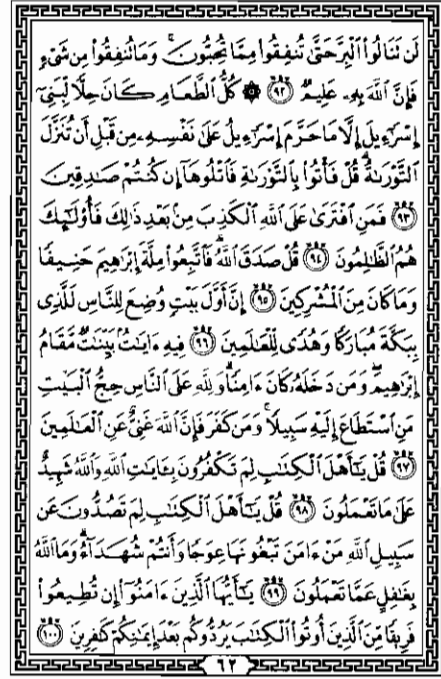 لَن نَنَالُوا۟ ٱلۡبِرَّ حَتَّىٰ تُنفِقُوا۟ مِمَّا تُحِبُّونَۚ وَمَا تُنفِقُوا۟ مِن شَىۡءٍ
فَإِنَّ ٱللَّهَ بِهِۦ عَلِيمٌ ۝٩٢ ۞ كُلُّ ٱلطَّعَامِ كَانَ حِلًّا لِّبَنِىٓ
إِسۡرَٰٓءِيلَ إِلَّا مَا حَرَّمَ إِسۡرَٰٓءِيلُ عَلَىٰ نَفۡسِهِۦ مِن قَبۡلِ أَن تُنَزَّلَ
ٱلتَّوۡرَىٰةُۗ قُلۡ فَأۡتُوا۟ بِٱلتَّوۡرَىٰةِ فَٱتۡلُوهَآ إِن كُنتُمۡ صَٰدِقِينَ
۝٩٣ فَمَنِ ٱفۡتَرَىٰ عَلَى ٱللَّهِ ٱلۡكَذِبَ مِنۢ بَعۡدِ ذَٰلِكَ فَأُو۟لَٰٓئِكَ
هُمُ ٱلظَّٰلِمُونَ ۝٩٤ قُلۡ صَدَقَ ٱللَّهُۗ فَٱتَّبِعُوا۟ مِلَّةَ إِبۡرَٰهِيمَ حَنِيفًا
وَمَا كَانَ مِنَ ٱلۡمُشۡرِكِينَ ۝٩٥ إِنَّ أَوَّلَ بَيۡتٍ وُضِعَ لِلنَّاسِ لَلَّذِى
بِبَكَّةَ مُبَارَكًا وَهُدًى لِّلۡعَٰلَمِينَ ۝٩٦ فِيهِ ءَايَٰتٌۢ بَيِّنَٰتٌ مَّقَامُ
إِبۡرَٰهِيمَۖ وَمَن دَخَلَهُۥ كَانَ ءَامِنًاۗ وَلِلَّهِ عَلَى ٱلنَّاسِ حِجُّ ٱلۡبَيۡتِ
مَنِ ٱسۡتَطَاعَ إِلَيۡهِ سَبِيلًاۚ وَمَن كَفَرَ فَإِنَّ ٱللَّهَ غَنِىٌّ عَنِ ٱلۡعَٰلَمِينَ
۝٩٧ قُلۡ يَٰٓأَهۡلَ ٱلۡكِتَٰبِ لِمَ تَكۡفُرُونَ بِـَٔايَٰتِ ٱللَّهِ وَٱللَّهُ شَهِيدٌ
عَلَىٰ مَا تَعۡمَلُونَ ۝٩٨ قُلۡ يَٰٓأَهۡلَ ٱلۡكِتَٰبِ لِمَ تَصُدُّونَ عَن
سَبِيلِ ٱللَّهِ مَنۡ ءَامَنَ تَبۡغُونَهَا عِوَجًا وَأَنتُمۡ شُهَدَآءُۗ وَمَا ٱللَّهُ
بِغَٰفِلٍ عَمَّا تَعۡمَلُونَ ۝٩٩ يَٰٓأَيُّهَا ٱلَّذِينَ ءَامَنُوٓا۟ إِن تُطِيعُوا۟
فَرِيقًا مِّنَ ٱلَّذِينَ أُوتُوا۟ ٱلۡكِتَٰبَ يَرُدُّوكُم بَعۡدَ إِيمَٰنِكُمۡ كَٰفِرِينَ ۝١٠٠
٦٢